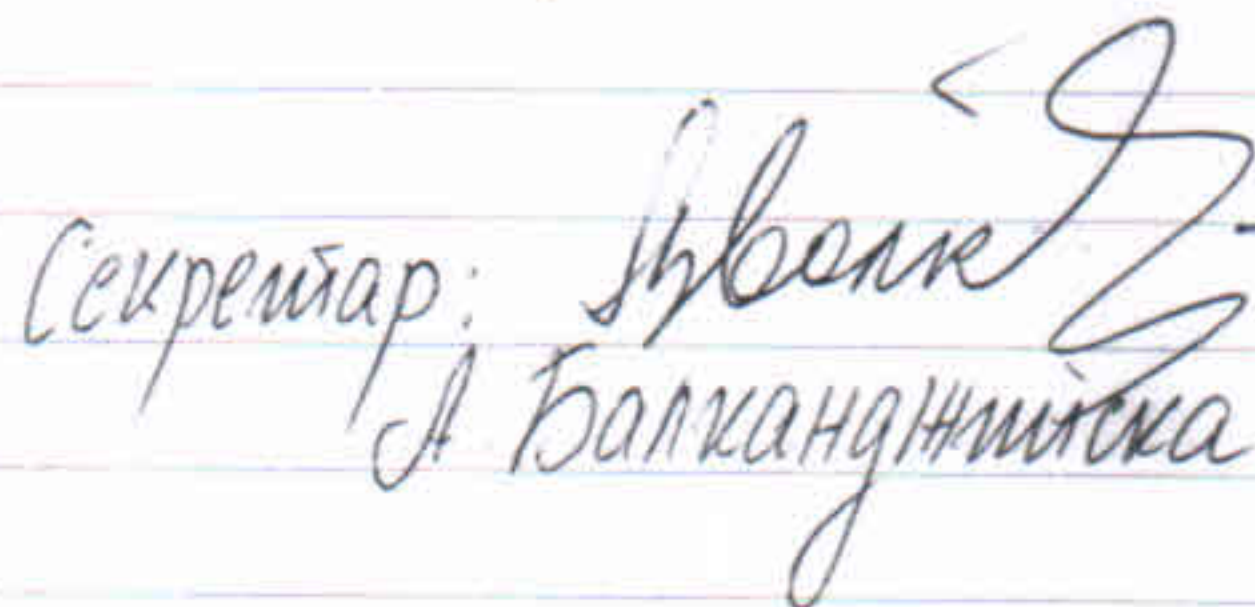 Секретар:
А Балканджийска